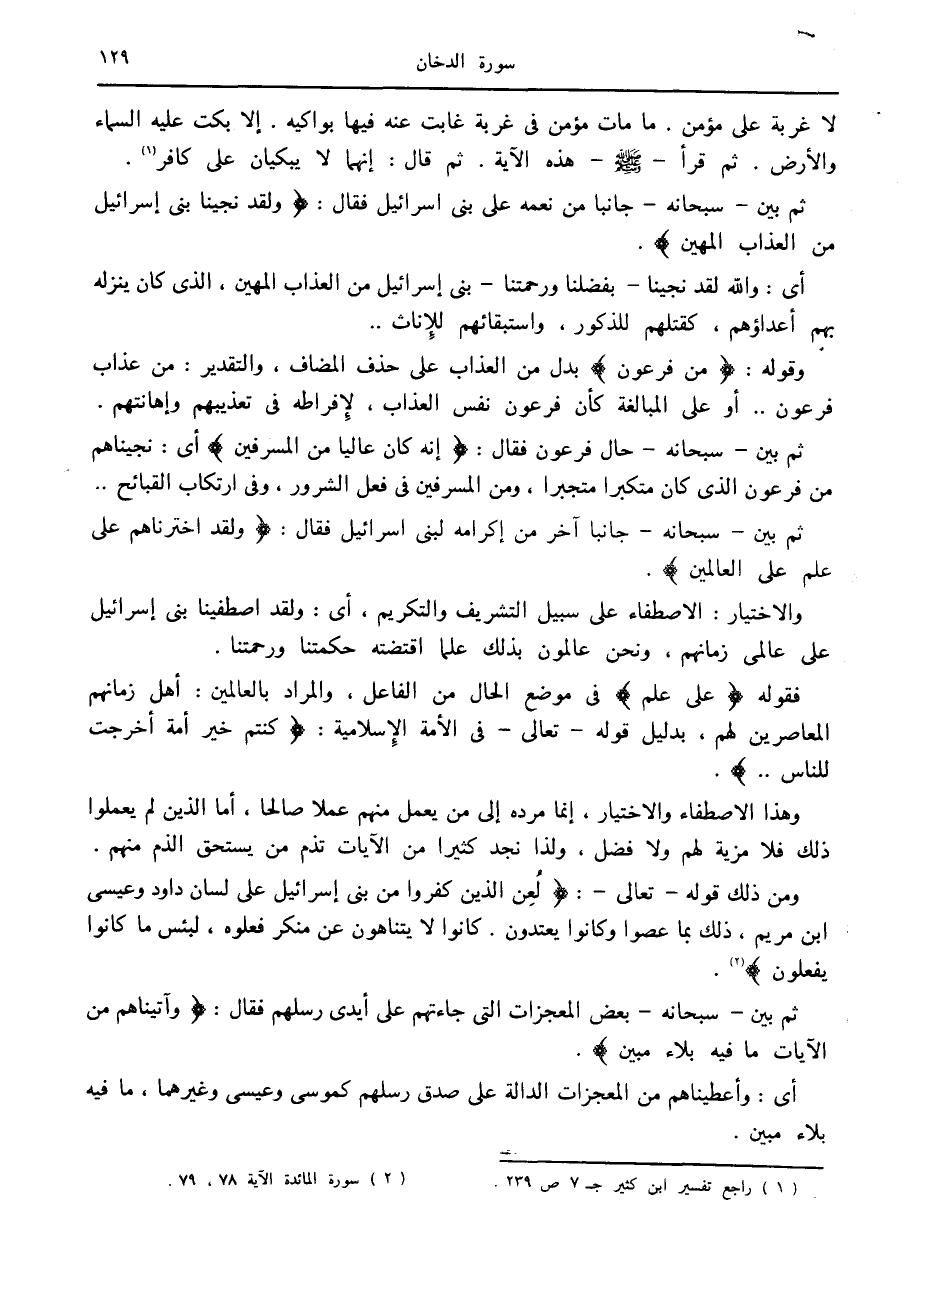 سورة الدخان
١٢٩
لا غربة على مؤمن . ما مات مؤمن فى غربة غابت عنه فيها بواكيه . إلا بكت عليه السماء
والأرض . ثم قرأ – ﷺ – هذه الآية . ثم قال : إنهما لا يبكيان على كافر(١) .
ثم بين – سبحانه – جانبا من نعمه على بنى اسرائيل فقال : ﴿ ولقد نجينا بنى إسرائيل
من العذاب المهين ﴾ .
أى : والله لقد نجينا – بفضلنا ورحمتنا – بنى إسرائيل من العذاب المهين ، الذى كان ينزله
بهم أعداؤهم ، كقتلهم للذكور ، واستبقائهم للإناث ..
وقوله : ﴿ من فرعون ﴾ بدل من العذاب على حذف المضاف ، والتقدير : من عذاب
فرعون .. أو على المبالغة كأن فرعون نفس العذاب ، لإفراطه فى تعذيبهم وإهانتهم .
ثم بين – سبحانه – حال فرعون فقال : ﴿ إنه كان عاليا من المسرفين ﴾ أى : نجيناهم
من فرعون الذى كان متكبرا متجبرا ، ومن المسرفين فى فعل الشرور ، وفى ارتكاب القبائح ..
ثم بين – سبحانه – جانبا آخر من إكرامه لبنى اسرائيل فقال : ﴿ ولقد اخترناهم على
علم على العالمين ﴾ .
والاختيار : الاصطفاء على سبيل التشريف والتكريم ، أى : ولقد اصطفينا بنى إسرائيل
على عالمى زمانهم ، ونحن عالمون بذلك علما اقتضته حكمتنا ورحمتنا .
فقوله ﴿ على علم ﴾ فى موضع الحال من الفاعل ، والمراد بالعالمين : أهل زمانهم
المعاصرين لهم ، بدليل قوله – تعالى – فى الأمة الإسلامية : ﴿ كنتم خير أمة أخرجت
للناس .. ﴾ .
وهذا الاصطفاء والاختيار ، إنما مرده إلى من يعمل منهم عملا صالحا ، أما الذين لم يعملوا
ذلك فلا مزية لهم ولا فضل ، ولذا نجد كثيرا من الآيات تذم من يستحق الذم منهم .
ومن ذلك قوله – تعالى – : ﴿ لُعن الذين كفروا من بنى إسرائيل على لسان داود وعيسى
ابن مريم ، ذلك بما عصوا وكانوا يعتدون . كانوا لا يتناهون عن منكر فعلوه ، لبئس ما كانوا
يفعلون ﴾(٢) .
ثم بين – سبحانه – بعض المعجزات التى جاءتهم على أيدى رسلهم فقال : ﴿ وآتيناهم من
الآيات ما فيه بلاء مبين ﴾ .
أى : وأعطيناهم من المعجزات الدالة على صدق رسلهم كموسى وعيسى وغيرهما ، ما فيه
بلاء مبين .
( ١ ) راجع تفسير ابن كثير جـ ٧ ص ٢٣٩ .
( ٢ ) سورة المائدة الآية ٧٨ ، ٧٩ .